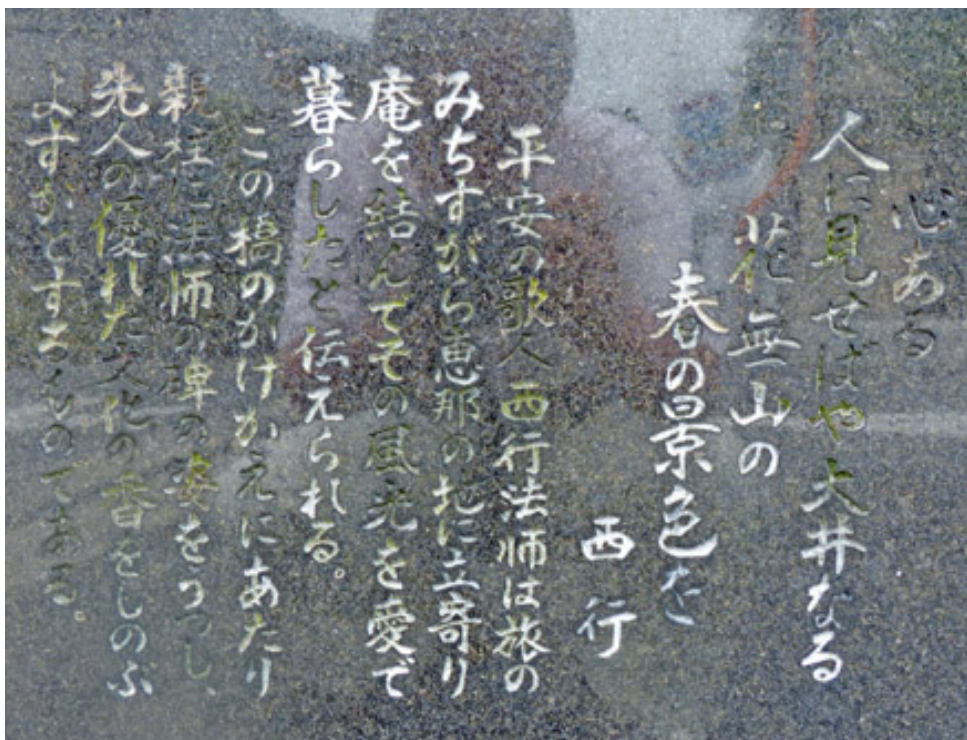 心ある
人に見せばや大井なる
花無山の
春の景色を
西行
平安の歌人西行法師は旅の
みちすがら恵那の地に立寄り
庵を結んでその風光を愛で
暮らしたと伝えられる。
この橋のかけかえにあたり
親柱に法師の碑の姿をうつし、
先人の優れた文化の香をしのぶ
よすがとするものである。